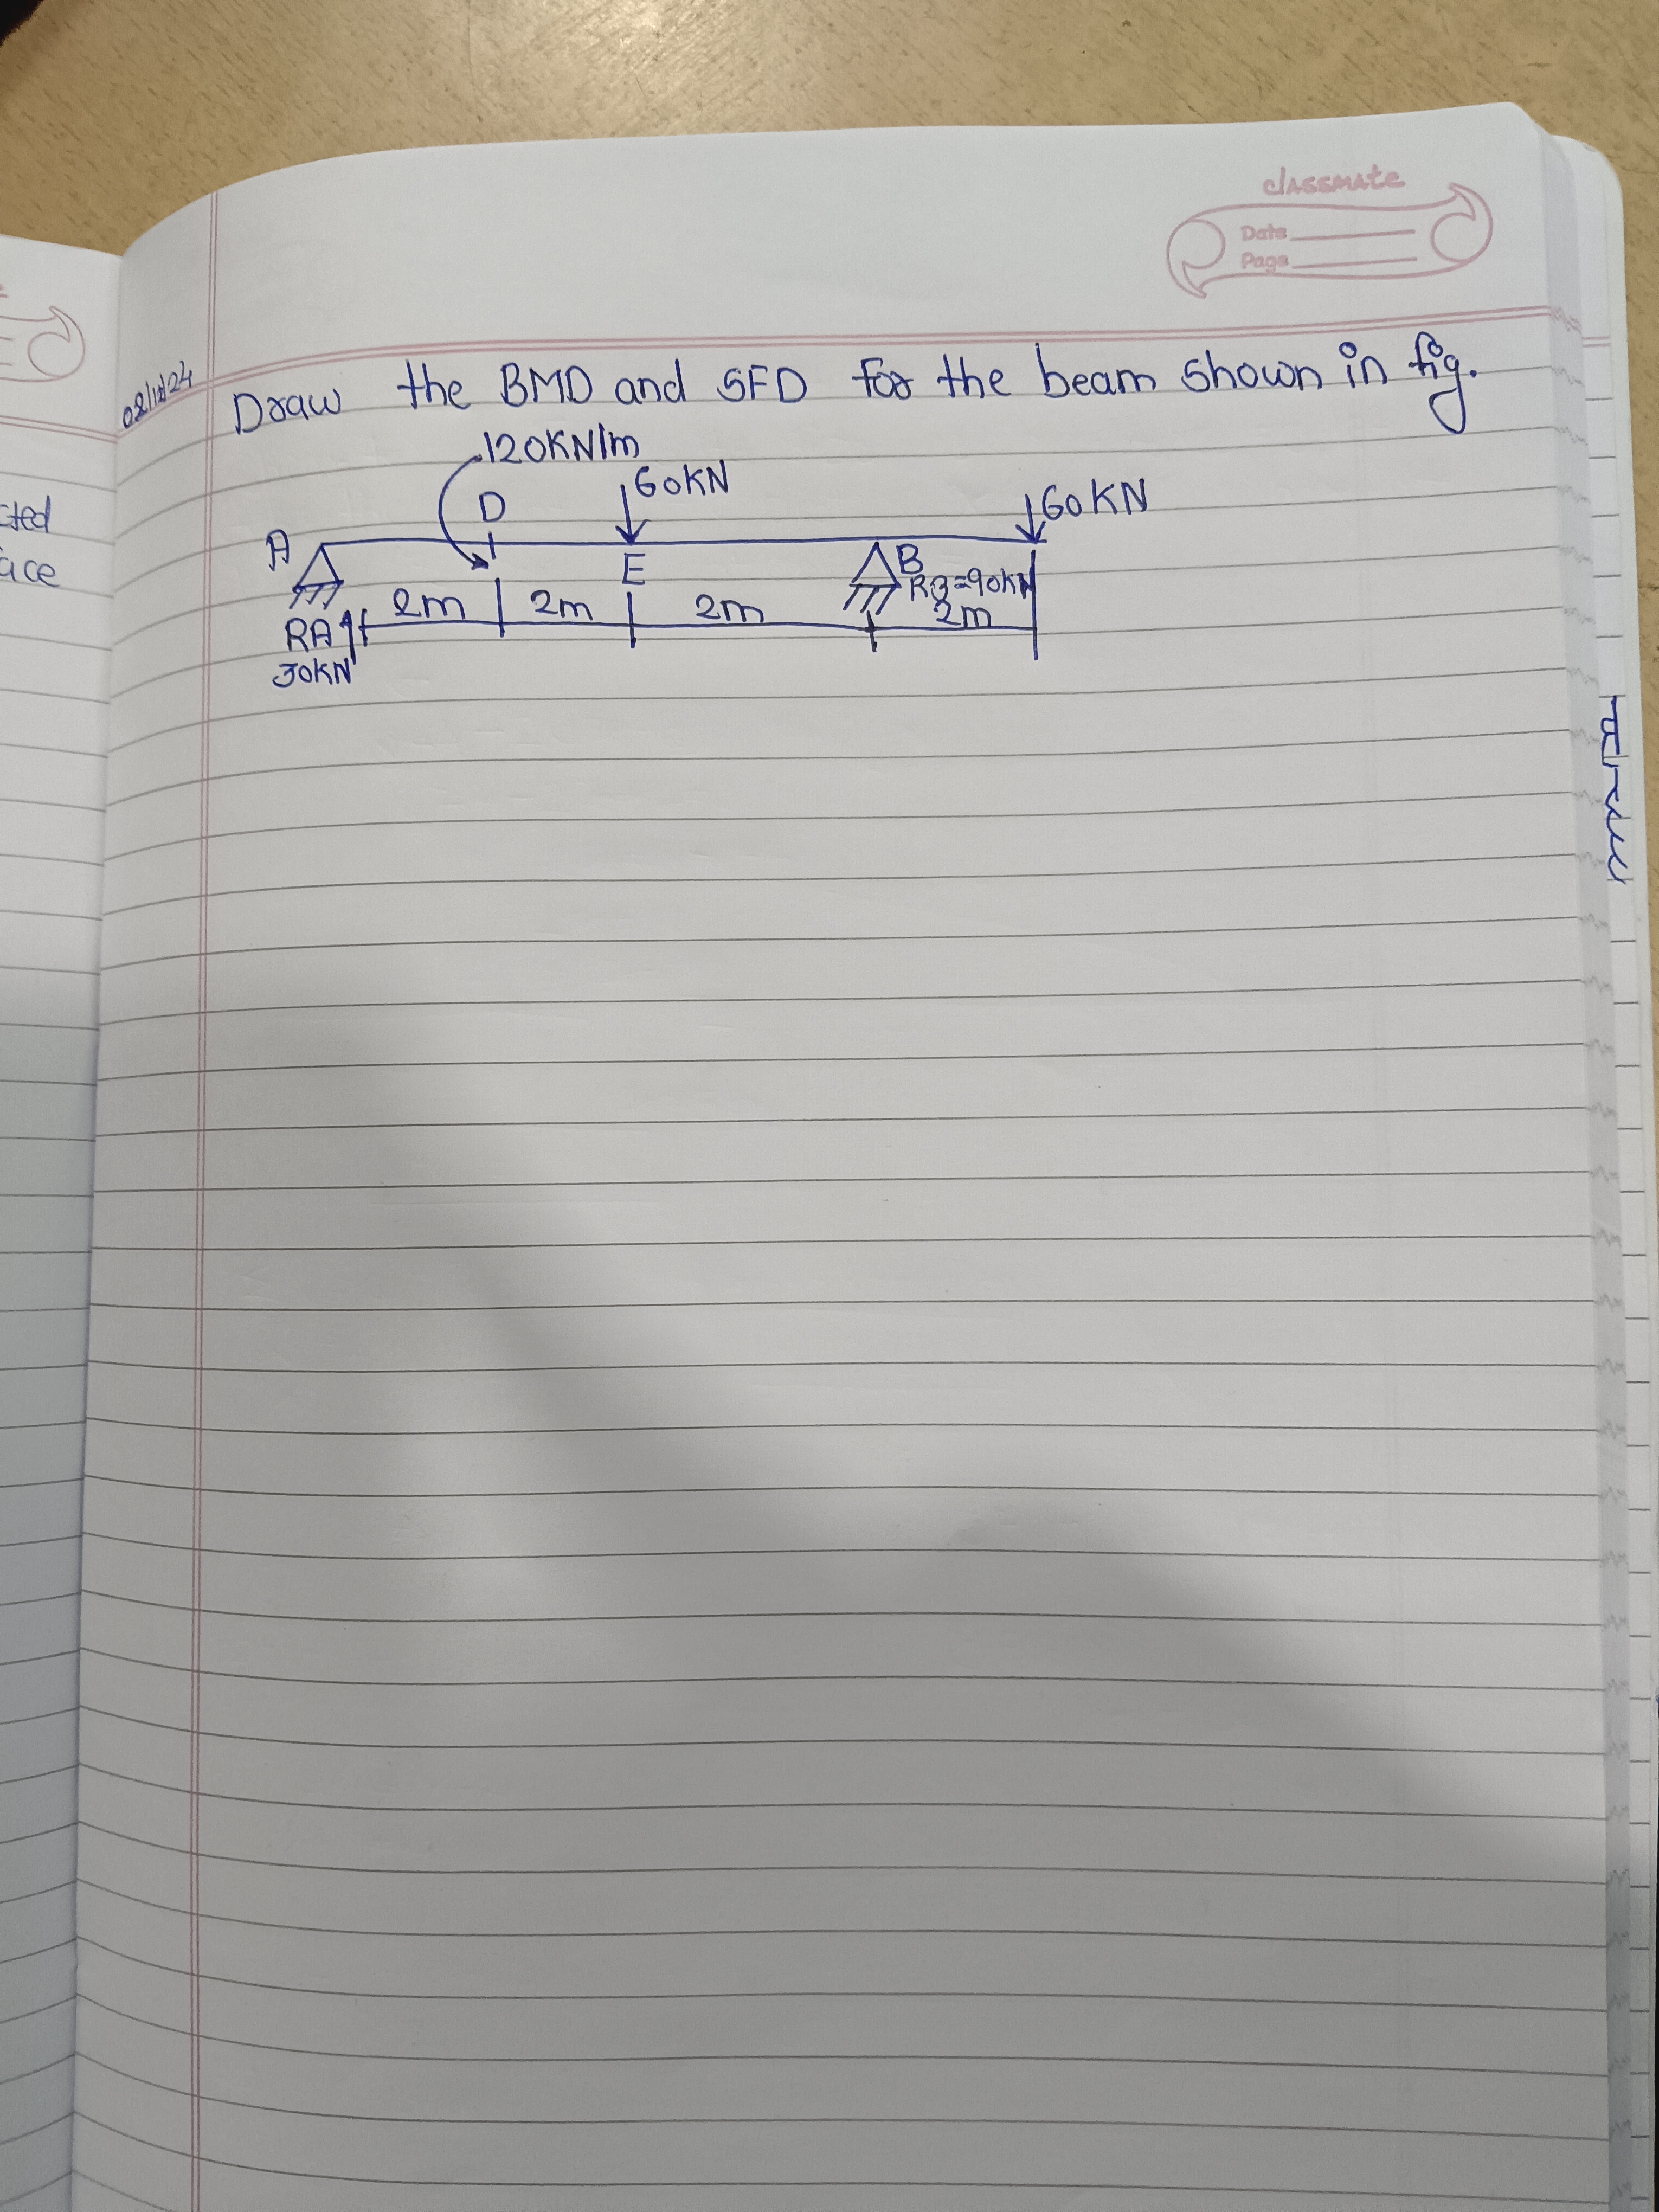 classmate
Date
Page
02/12/24
Draw the BMD and SFD for the beam shown in fig.
120KN/m
60KN
60KN
D
A
E
B
RB=90KN
2m 2m 2m 2m
RA
30KN
cted
ace